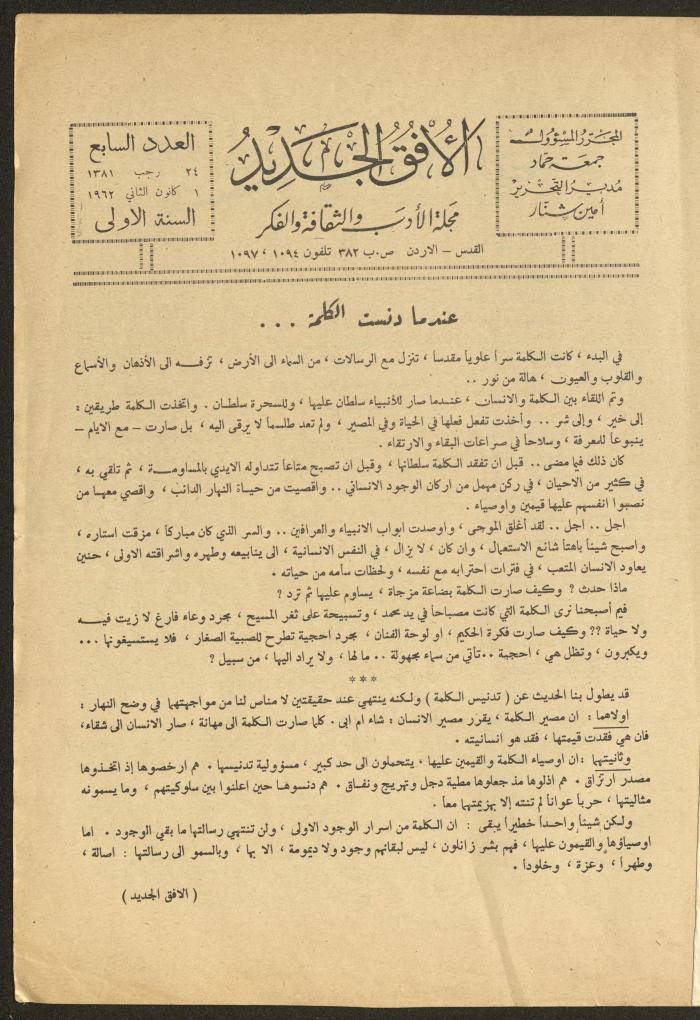 المحرر المسؤول
جمعة حماد
مدير التحرير
أمين شنار
الأفق الجديد
مجلة الأدب والثقافة والفكر
القدس – الاردن ص.ب ٣٨٢ تلفون ١٠٩٤ ، ١٠٩٧
العدد السابع
٢٤ رجب ١٣٨١
١ كانون الثاني ١٩٦٢
السنة الاولى
عندما دنست الكلمة ...
في البدء ، كانت الكلمة سراً علوياً مقدساً ، تنزل مع الرسالات ، من السماء الى الأرض ، تزفه الى الأذهان والأسماع
والقلوب والعيون ، هالة من نور ..
وتم اللقاء بين الكلمة والانسان ، عندما صار للأنبياء سلطان عليها ، وللسحرة سلطان . واتخذت الكلمة طريقين :
إلى خير ، وإلى شر .. وأخذت تفعل فعلها في الحياة وفي المصير ، ولم تعد طلسماً لا يرقى اليه ، بل صارت – مع الايام –
ينبوعاً للمعرفة ، وسلاحاً في صراعات البقاء والارتقاء .
كان ذلك فيما مضى .. قبل ان تفقد الكلمة سلطانها ، وقبل ان تصبح متاعاً تتداوله الايدي بالمساومة ، ثم تلقي به ،
في كثير من الاحيان ، في ركن مهمل من اركان الوجود الانساني .. واقصيت من حياة النهار الدائب ، واقصي معها من
نصبوا انفسهم عليها قيمين واوصياء .
اجل .. اجل .. لقد أغلق الموحى ، واوصدت ابواب الانبياء والعرافين .. والسر الذي كان مباركاً ، مزقت استاره ،
واصبح شيئاً باهتاً شائع الاستعمال ، وان كان ، لا يزال ، في النفس الانسانية ، الى ينابيعه وطهره واشراقته الاولى ، حنين
يعاود الانسان المتعب ، في فترات احترابه مع نفسه ، ولحظات سأمه من حياته .
ماذا حدث ؟ وكيف صارت الكلمة بضاعة مزجاة ، يساوم عليها ثم ترد ؟
فيم أصبحنا نرى الكلمة التي كانت مصباحاً في يد محمد ، وتسبيحة على ثغر المسيح ، مجرد وعاء فارغ لا زيت فيه
ولا حياة ؟؟ وكيف صارت فكرة الحكيم ، او لوحة الفنان ، مجرد احجية تطرح للصبية الصغار ، فلا يستسيغونها ...
ويكبرون ، وتظل هي ، احجية .. تأتي من سماء مجهولة .. ما لها ، ولا يراد اليها ، من سبيل ؟
***
قد يطول بنا الحديث عن ( تدنيس الكلمة ) ولكنه ينتهي عند حقيقتين لا مناص لنا من مواجهتهما في وضح النهار :
اولاهما : ان مصير الكلمة ، يقرر مصير الانسان : شاء ام ابى . كلما صارت الكلمة الى مهانة ، صار الانسان الى شقاء ،
فان هي فقدت قيمتها ، فقد هو انسانيته .
وثانيتهما : ان اوصياء الكلمة والقيمين عليها ، يتحملون الى حد كبير ، مسؤولية تدنيسها . هم ارخصوها إذ اتخذوها
مصدر ارتزاق . هم اذلوها مذ جعلوها مطية دجل وتهريج ونفاق . هم دنسوها حين اعلنوا بين سلوكيتهم ، وما يسمونه
مثاليتها ، حرباً عواناً لم تنته إلا بهزيمتهما معاً .
ولكن شيئاً واحداً خطيراً يبقى : ان الكلمة من اسرار الوجود الاولى ، ولن تنتهي رسالتها ما بقي الوجود . اما
اوصياؤها والقيمون عليها ، فهم بشر زائلون ، ليس لبقائهم وجود ولا ديمومة ، الا بها ، وبالسمو الى رسالتها : اصالة ،
وطهراً ، وعزة ، وخلوداً .
( الافق الجديد )